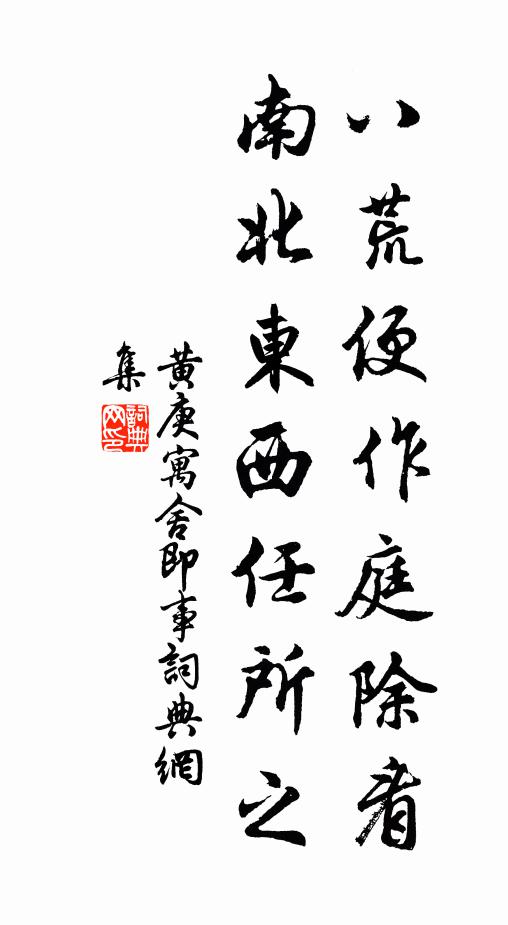 八荒便作庭除看
南北東西任所之
黄庚寓舍即事詞典網
集
詞典网印